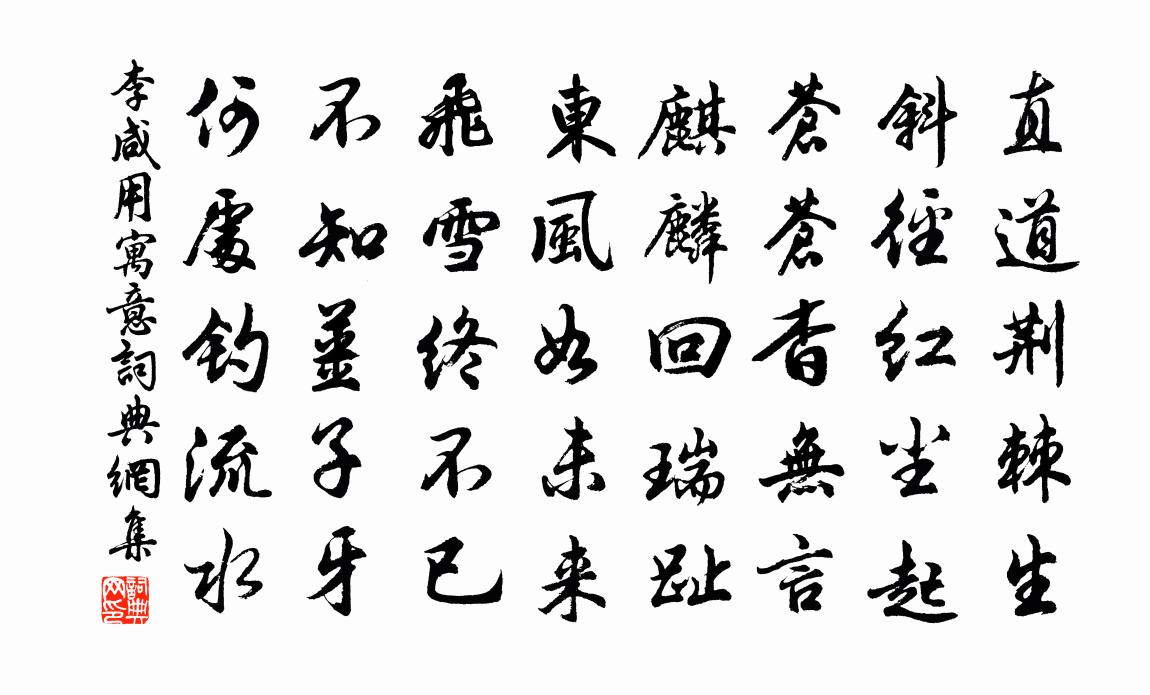 直道荆棘生
斜徑红尘起
蒼蒼杳無言
麒麟回瑞趾
東風如未来
飛雪终不已
不知薑子牙
何處钓流水
李咸用寓意詞典網集
詞典网印